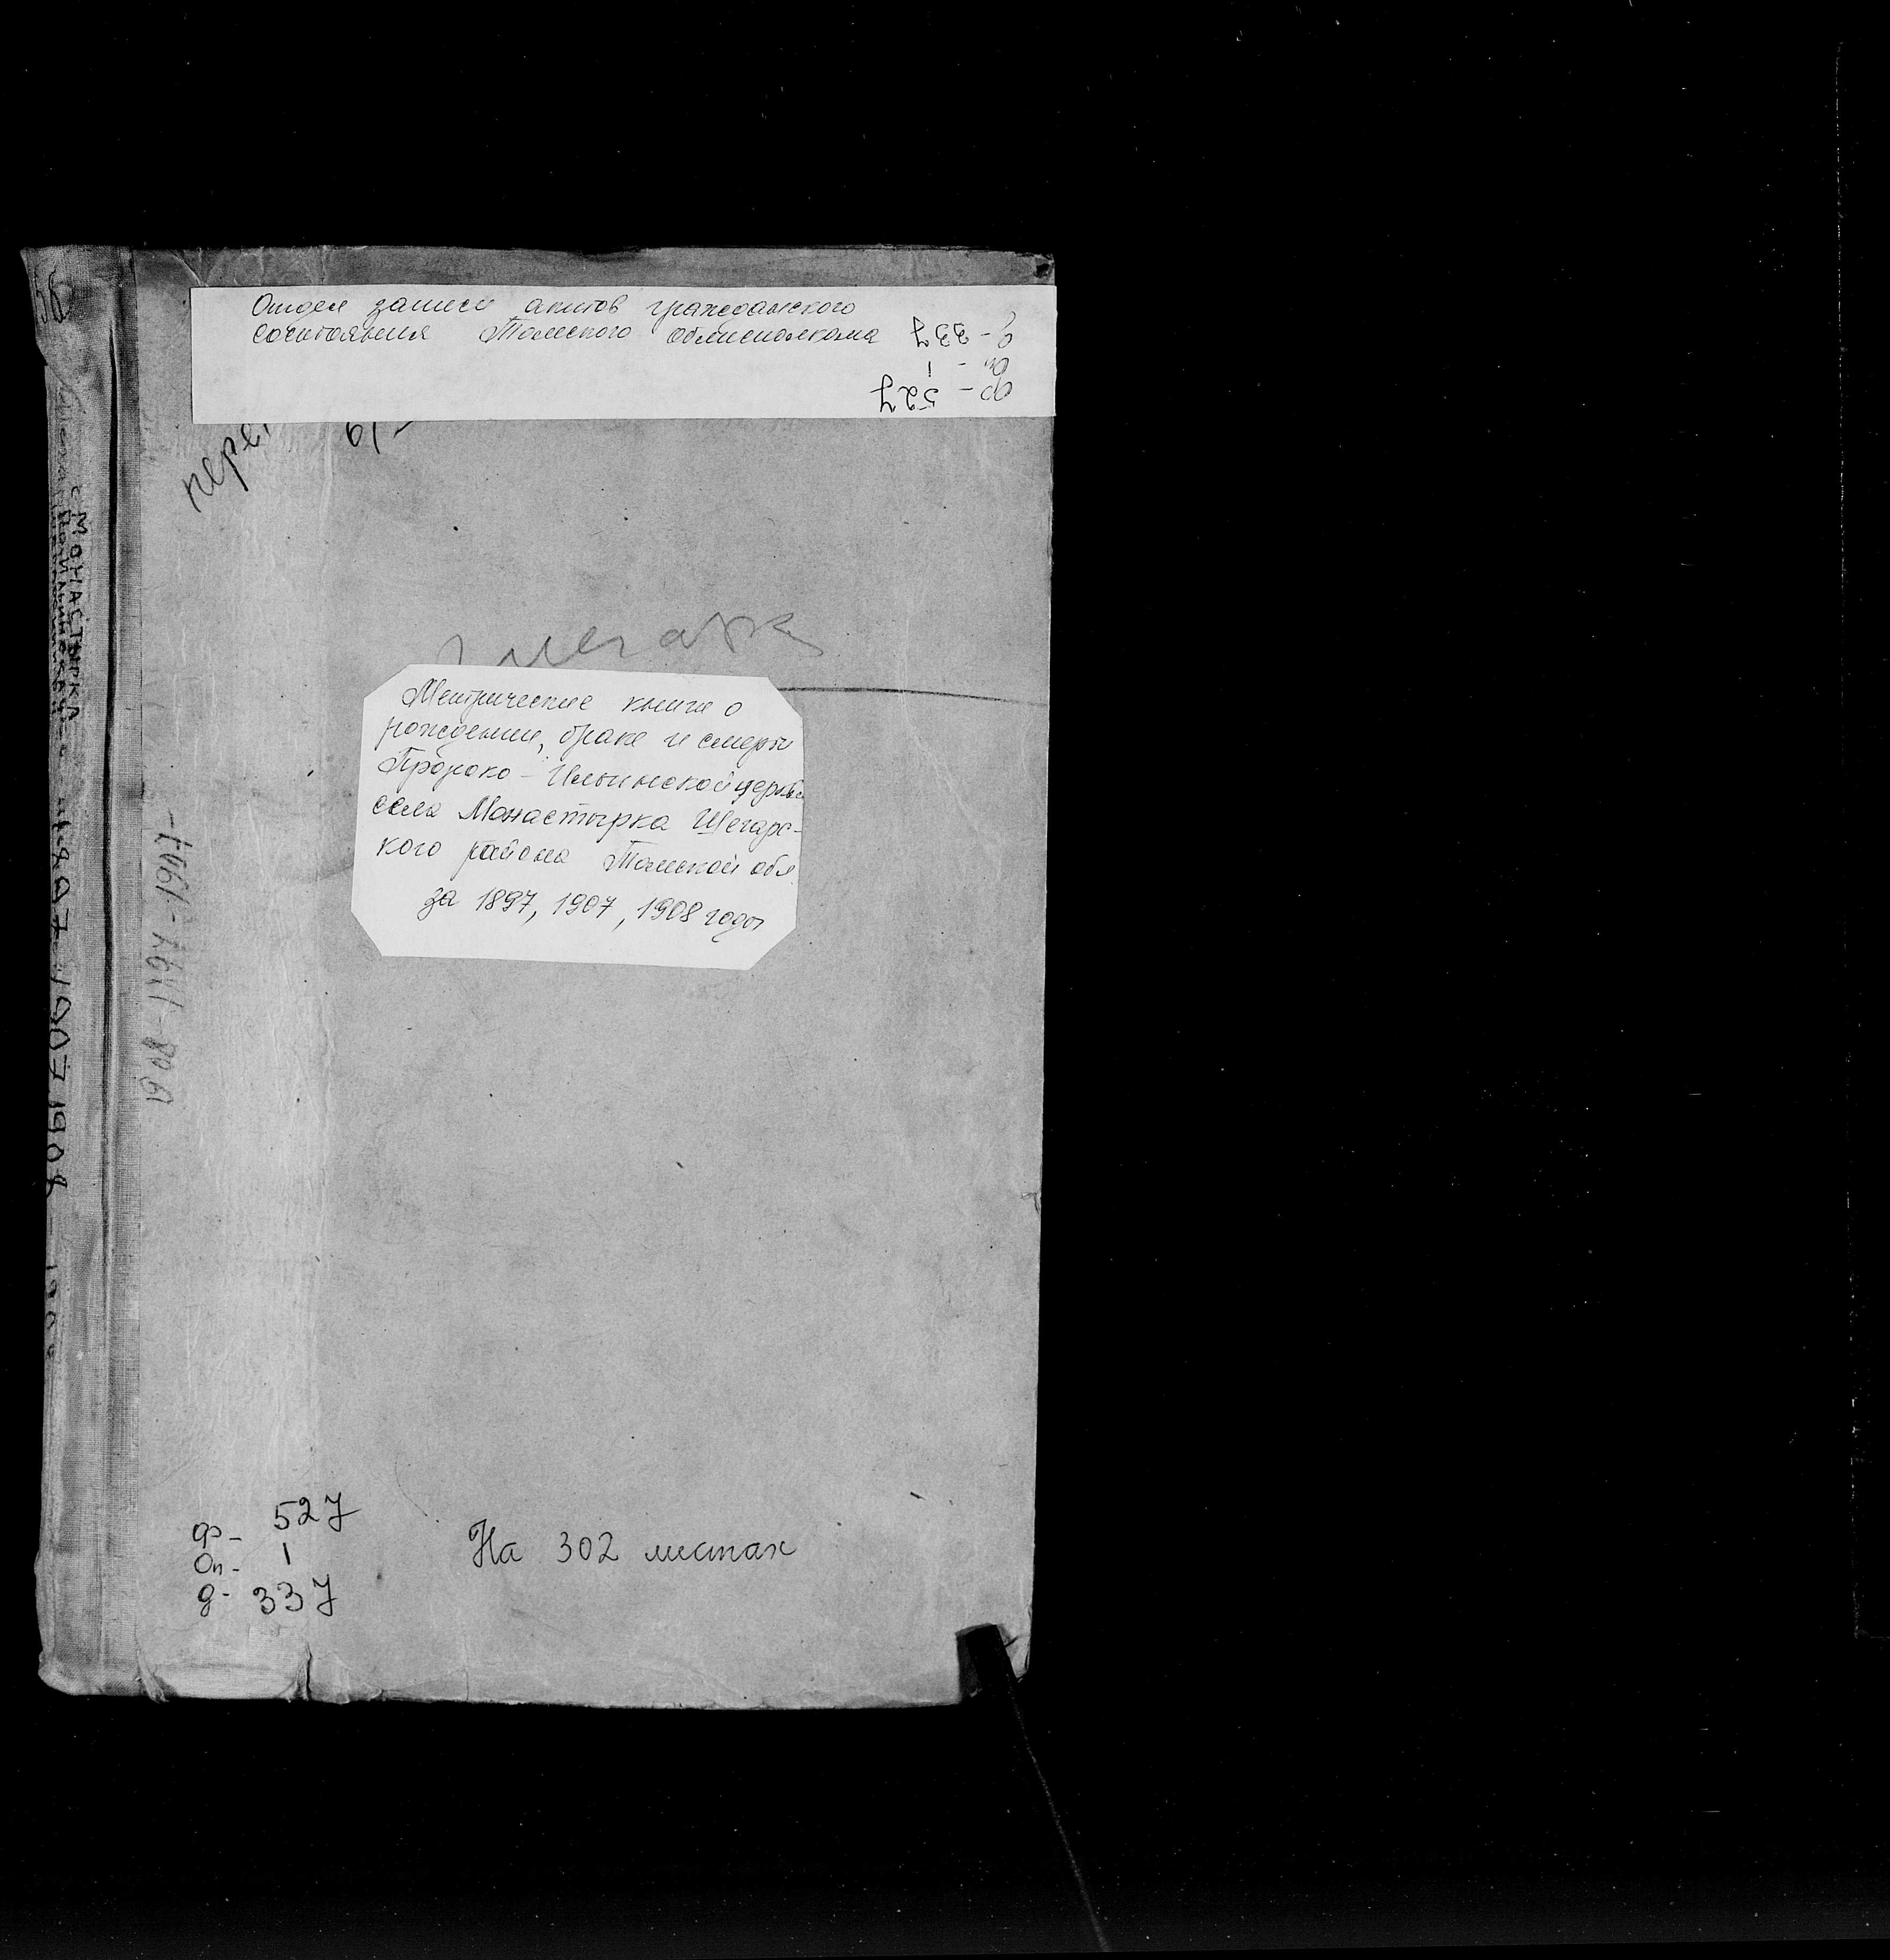 Отдел записи актов гражданского
состояния Томского облисполкома
ф - 527
Оп - 1
д - 337
перв
Шегарк
Метрические книги о
рождении, браке и смерти
Пророко-Ильинской церкви
села Монастырка Шегарс-
кого района Томской обл
за 1897, 1907, 1908 годы
с МОНАСТЫРКА
1897 1907 1908
1908-1897-1907-
ф - 527
Оп - 1
д - 337
На 302 листах